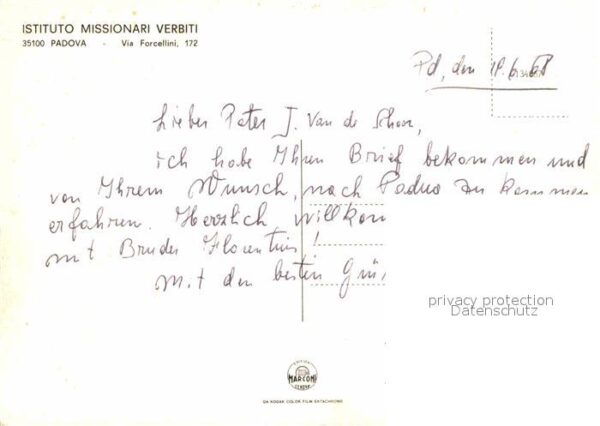 ISTITUTO MISSIONARI VERBITI
35100 PADOVA - Via Forcellini, 172
Pd, den 18.6.68
Lieber Pater J. Van de Schoor,
ich habe Ihren Brief bekommen und
von Ihrem Wunsch, nach Padua zu kommen
erfahren. Herzlich willkom
mit Bruder Florentius!
Mit den besten Grü
privacy protection
Datenschutz
MARCONI
GENOVA
DA KODAK COLOR FILM EKTACHROME